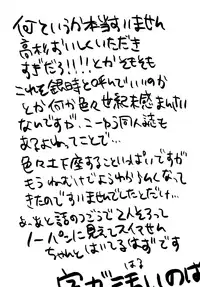 何ていうか本当すいません
高杉ばいしくいただき
すぎだろ!!!!とかそもそも
これを銀時と呼んでいいのか
とか何か色々世紀末感まんさい
ないですが、こーゆう同人誌も
あるよねってことで…
色々土下座することいっぱいですが
もうねむけでようわからんくなって
きたのですいませんでしたとだけ…
あ、あと話のつごうで2人そろって
ノーパンに見えてスイマセン
ちゃんとはいてるはずです